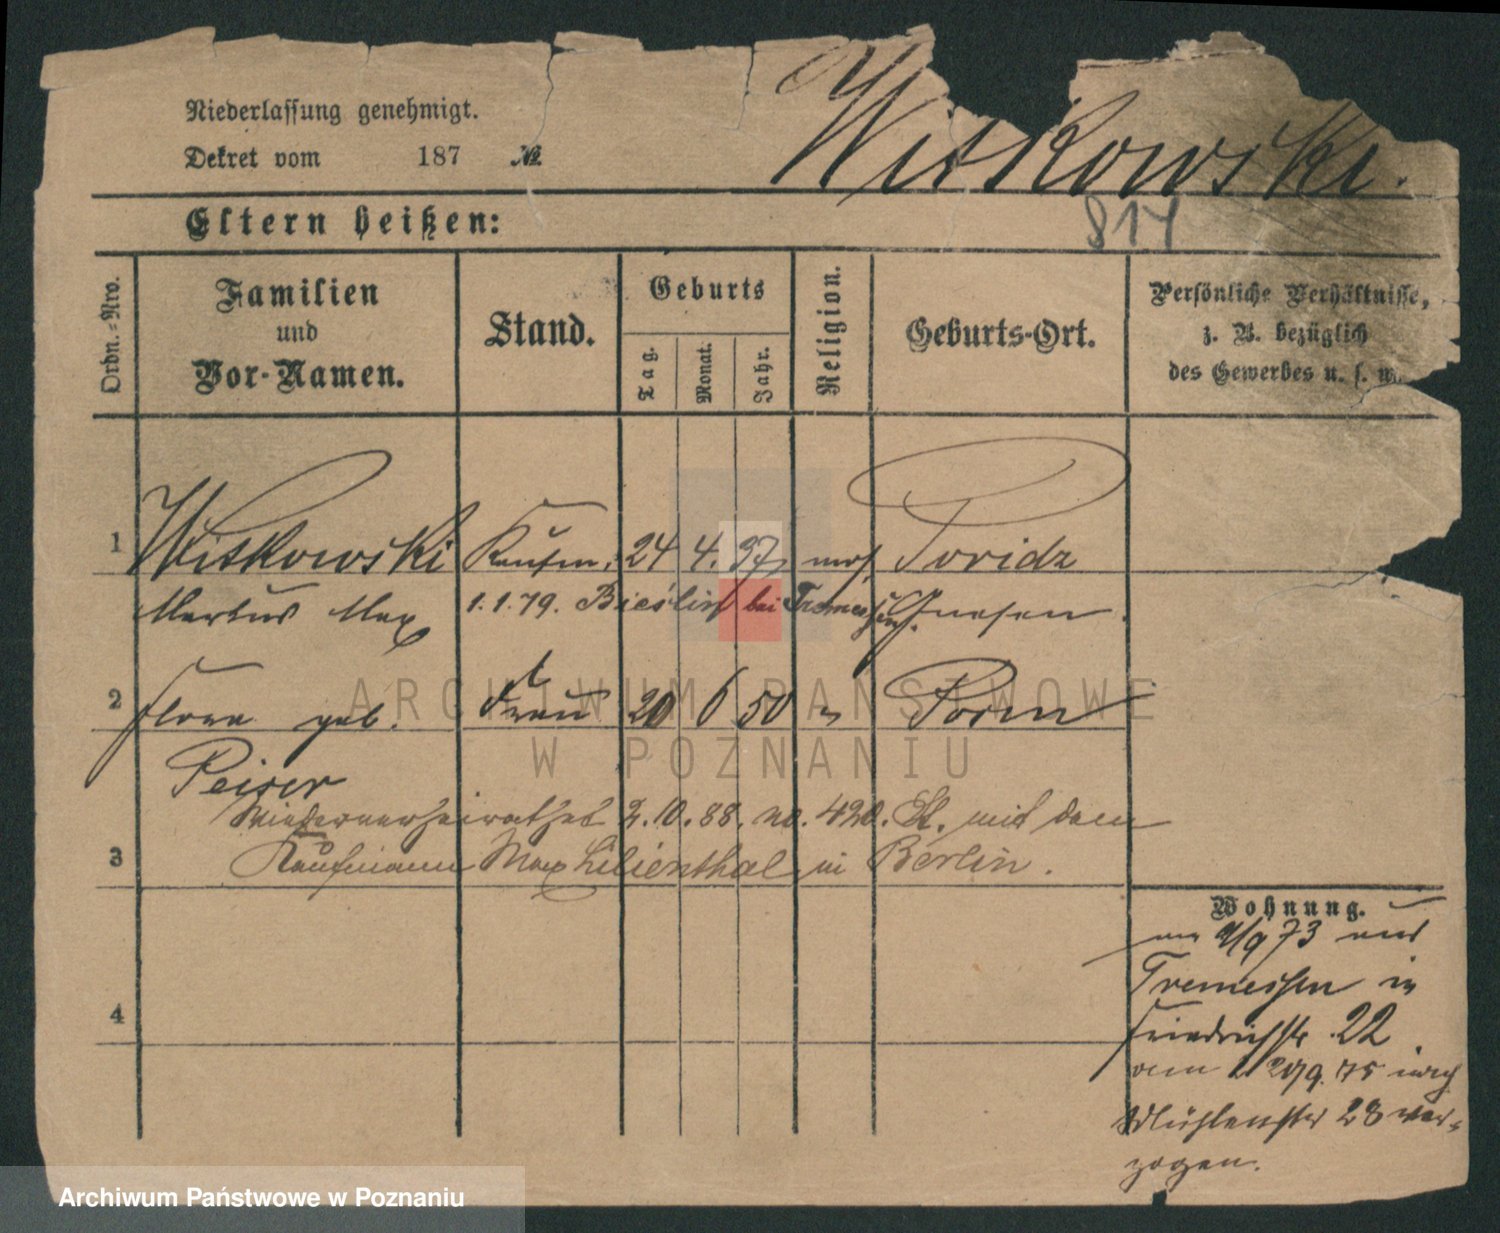 Witkowski.
Niederlassung genehmigt.
Dekret vom 187 №
814
Eltern heißen:
Ordn.-Nro.
Familien
und
Vor-Namen.
Stand.
Geburts
Tag.
Monat.
Jahr.
Religion.
Geburts-Ort.
Persönliche Verhältnisse,
z. B. bezüglich
des Gewerbes u. s. w.
1 Witkowski Kaufm. 24 4. 37 mos.
Markus Max 1.1.79. Bieslin bei Tremessen Gnesen.
2 Flora geb. Frau 20 6 50 " Posen
Peiser
Wiederverheirathet 2.10.88. no. 420. St. mit dem
3 Kaufmann Max Lilienthal in Berlin.
4
Wohnung.
am 2/9 73 aus
Tremessen in
Friedrichstr. 22
75 nach
Mühlenstr 28 ver-
zogen.
ARCHIWUM PAŃSTWOWE
W POZNANIU
Archiwum Państwowe w Poznaniu